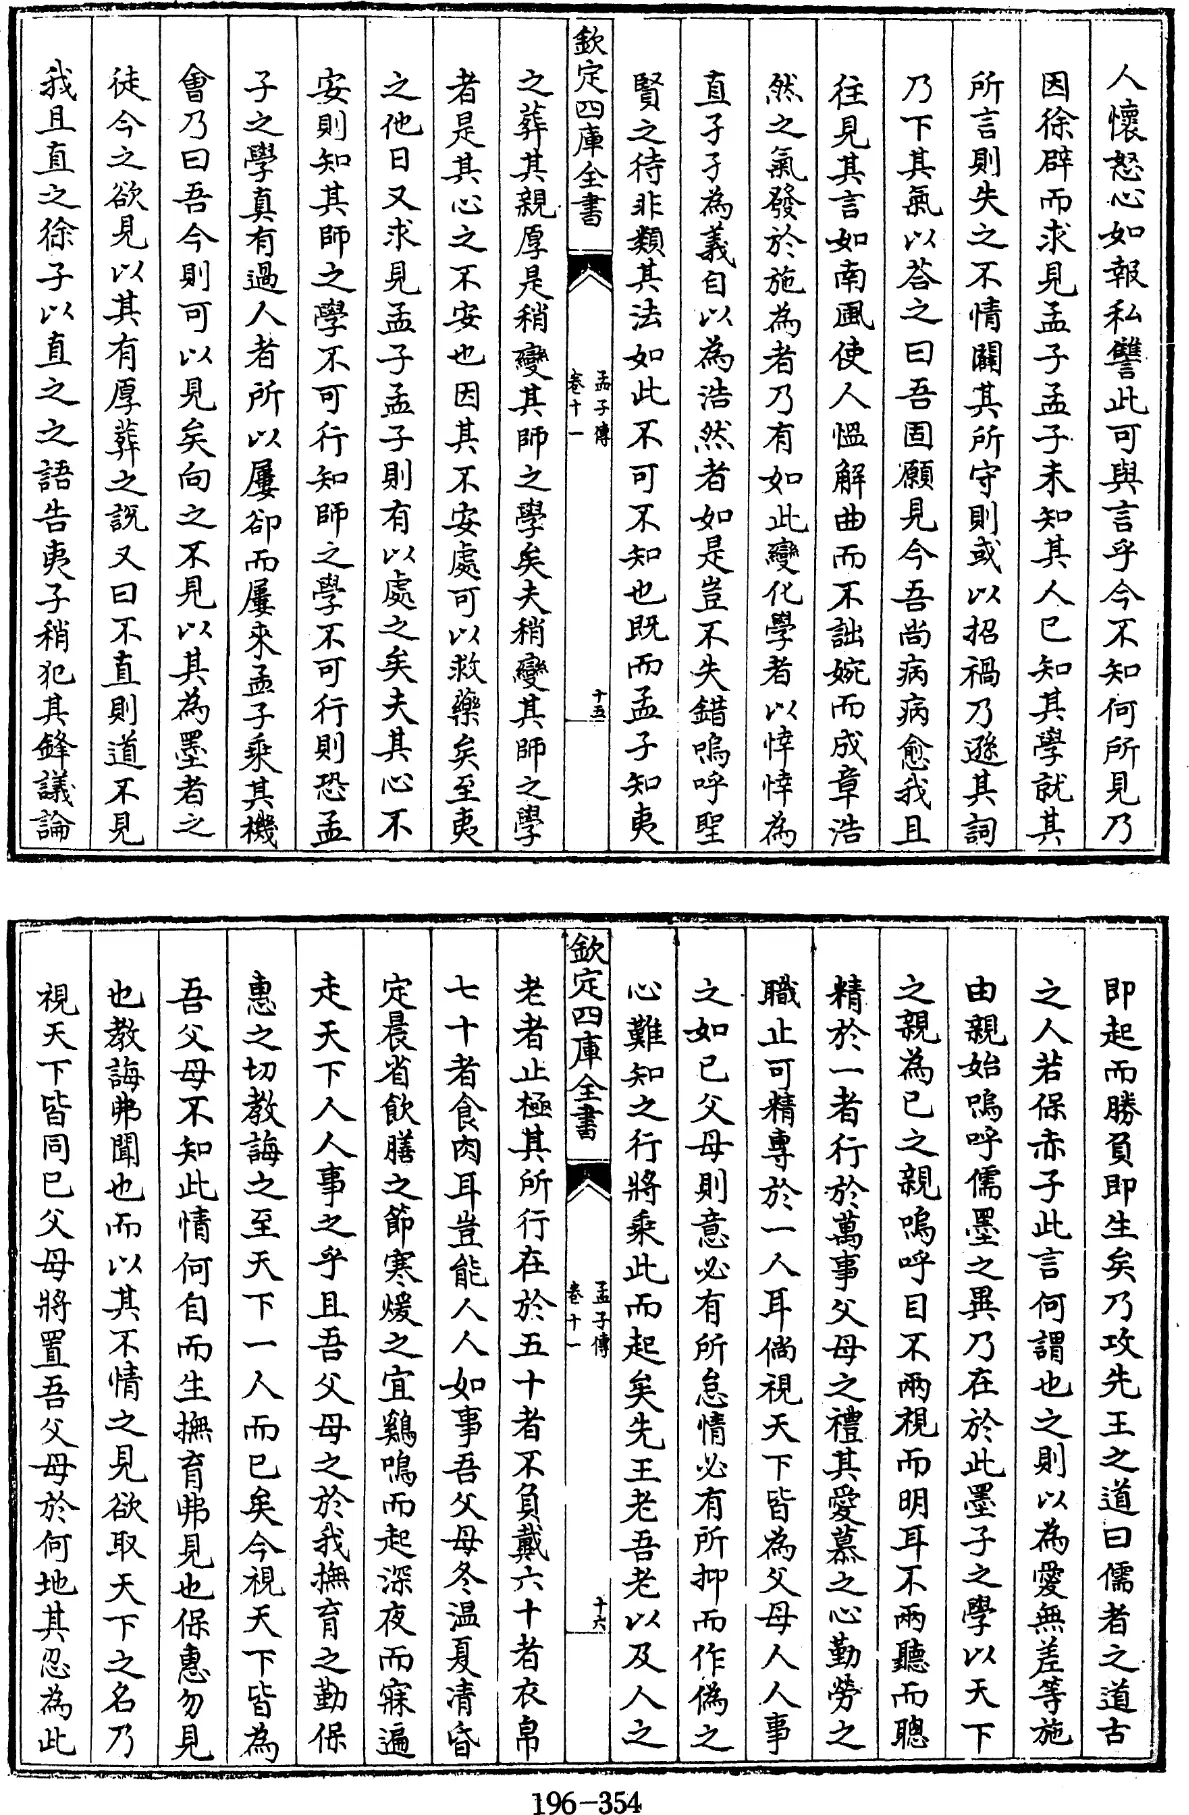 人懷怒心如報私讐此可與言乎今不知何所見乃
因徐辟而求見孟子孟子未知其人已知其學就其
所言則失之不情闢其所守則或以招禍乃遜其詞
乃下其氣以荅之曰吾固願見今吾尚病病愈我且
往見其言如南風使人慍解曲而不詘婉而成章浩
然之氣發於施為者乃有如此變化學者以悻悻為
直孑孑為義自以為浩然者如是豈不失錯嗚呼聖
賢之待非類其法如此不可不知也既而孟子知夷
欽定四庫全書
孟子傳
卷十一
十五
之葬其親厚是稍變其師之學矣夫稍變其師之學
者是其心之不安也因其不安處可以救藥矣至夷
之他日又求見孟子孟子則有以處之矣夫其心不
安則知其師之學不可行知師之學不可行則恐孟
子之學真有過人者所以屢卻而屢來孟子乘其機
會乃曰吾今則可以見矣向之不見以其為墨者之
徒今之欲見以其有厚葬之說又曰不直則道不見
我且直之徐子以直之之語告夷子稍犯其鋒議論
即起而勝負即生矣乃攻先王之道曰儒者之道古
之人若保赤子此言何謂也之則以為愛無差等施
由親始嗚呼儒墨之異乃在於此墨子之學以天下
之親為己之親嗚呼目不兩視而明耳不兩聽而聰
精於一者行於萬事父母之禮其愛慕之心勤勞之
職止可精專於一人耳倘視天下皆為父母人人事
之如己父母則意必有所怠情必有所抑而作偽之
心難知之行將乘此而起矣先王老吾老以及人之
欽定四庫全書
孟子傳
卷十一
十六
老者止極其所行在於五十者不負戴六十者衣帛
七十者食肉耳豈能人人如事吾父母冬溫夏凊昏
定晨省飲膳之節寒煖之宜鷄鳴而起深夜而寐遍
走天下人人事之乎且吾父母之於我撫育之勤保
惠之切教誨之至天下一人而已矣今視天下皆為
吾父母不知此情何自而生撫育弗見也保惠勿見
也教誨弗聞也而以其不情之見欲取天下之名乃
視天下皆同已父母將置吾父母於何地其忍為此
196-354